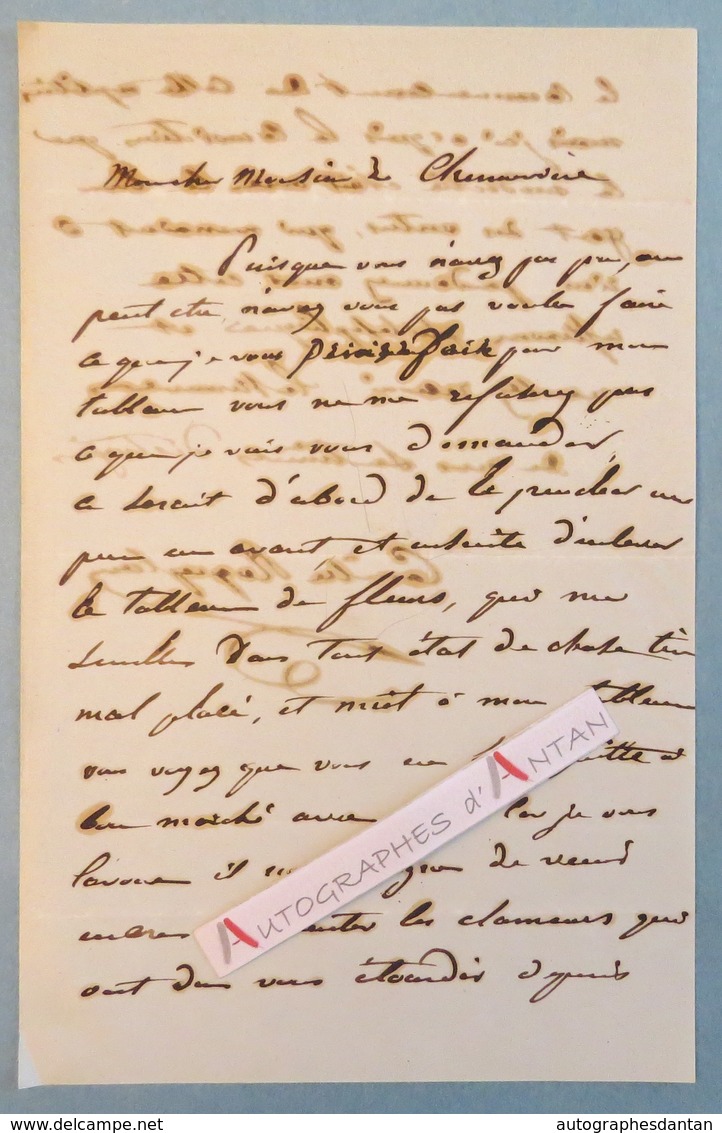 Mon cher Monsieur de Chennevière
Puisque vous n'avez pas pu, ou
peut etre, n'avez vous pas voulu faire
ce que je vous pour mon
tableau vous ne me refuserez pas
ce que je vais vous demander,
ce serait d'abord de le pencher un
peu en avant, et ensuite d'enlever
le tableau de fleurs, qui me
semble dans tout état de chose très
mal placé, et nuit à mon tableau
vous voyez que vous en quitte à
bon marché avec car je vous
l'avoue il
les clameurs qui
ont dau vous étourdir depuis
AUTOGRAPHES d'ANTAN
www.delcampe.net
autographesdantan